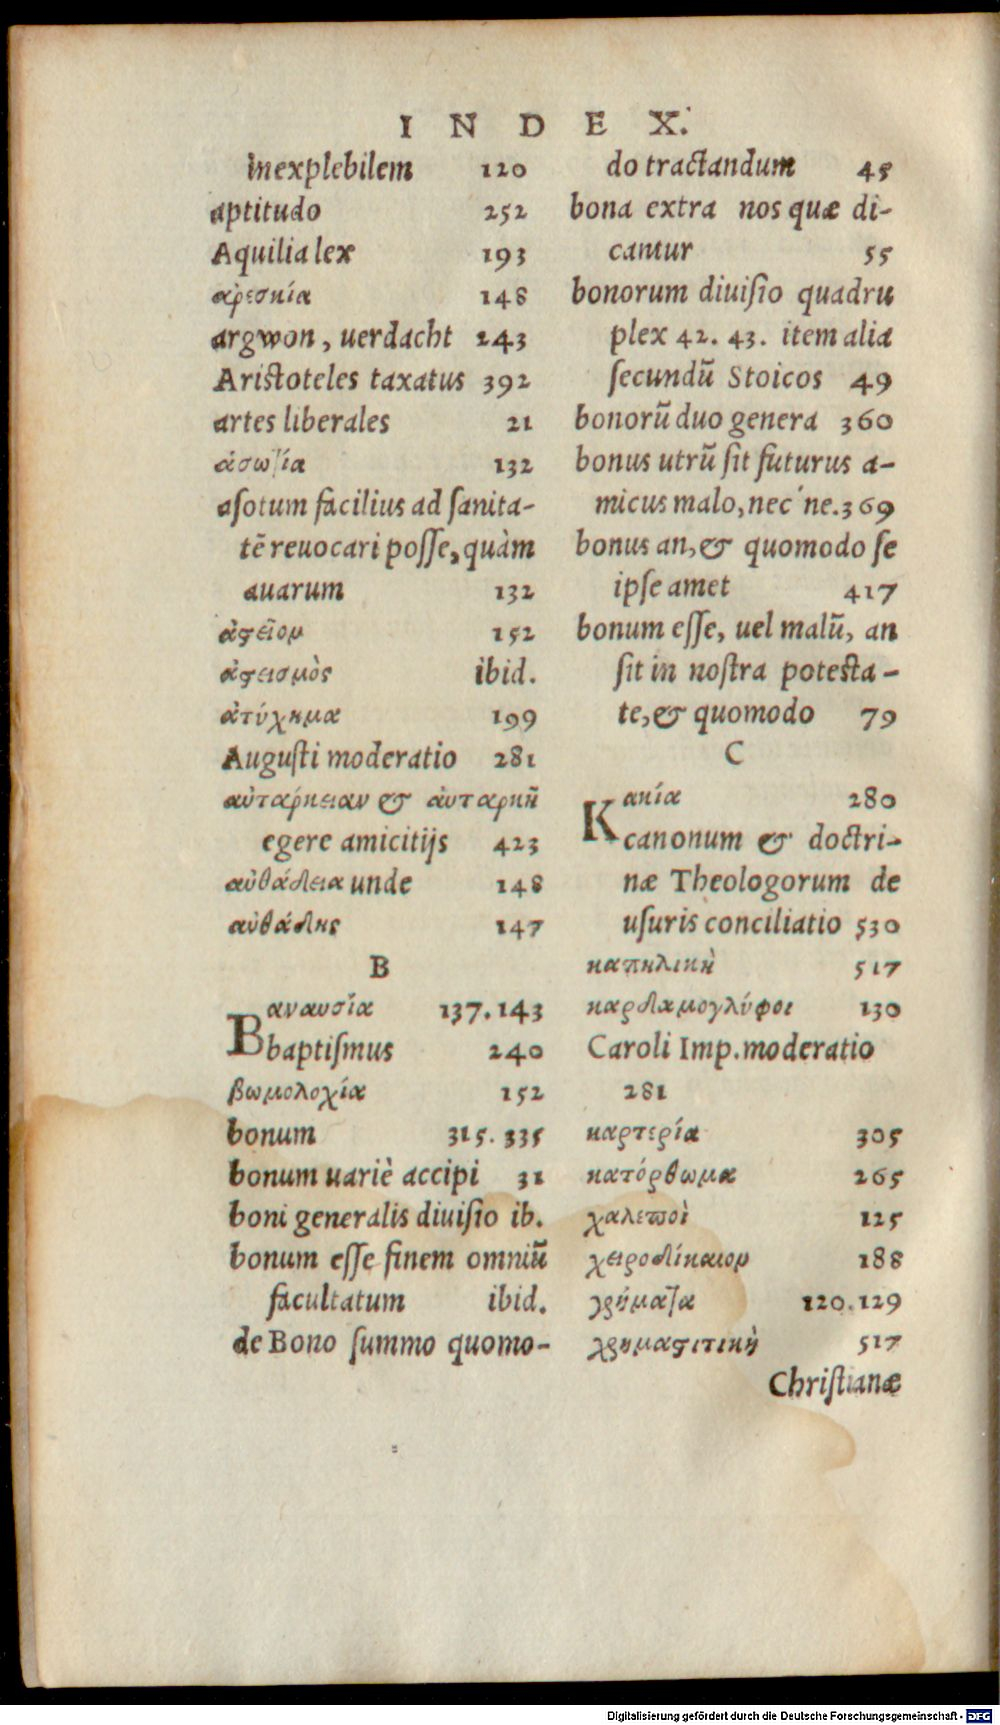 INDEX.
inexplebilem 120
aptitudo 252
Aquilia lex 193
ἀρεσκία 148
argwon, uerdacht 243
Aristoteles taxatus 392
artes liberales 21
ἀσωτία 132
asotum facilius ad ſanita-
tē reuocari poſſe, quàm
auarum 132
ἀςεῖον 152
ἀςεισμὸς ibid.
ἀτύχημα 199
Auguſti moderatio 281
αὐτάρκειαν & ἀυταρκῆ
egere amicitijs 423
αὐθάδεια unde 148
αὐθάδης 147
B
Βαναυσία 137.143
baptiſmus 240
βωμολοχία 152
bonum 315. 335
bonum uariè accipi 31
boni generalis diuiſio ib.
bonum eſſe finem omniū
facultatum ibid.
de Bono ſummo quomo-
do tractandum 45
bona extra nos quæ di-
cantur 55
bonorum diuiſio quadru
plex 42. 43. item alia
ſecundū Stoicos 49
bonorū duo genera 360
bonus utrū ſit futurus a-
micus malo, nec ne. 369
bonus an, & quomodo ſe
ipſe amet 417
bonum eſſe, uel malū, an
ſit in noſtra poteſta-
te, & quomodo 79
C
Κακία 280
canonum & doctri-
næ Theologorum de
uſuris conciliatio 530
καπηλικὴ 517
καρδαμογλύφοι 130
Caroli Imp. moderatio
281
καρτερία 305
κατόρθωμα 265
χαλεποὶ 125
χειροδίκαιον 188
χρήματα 120.129
χρημαςιτικὴ 517
Chriſtianæ
Digitalisierung gefördert durch die Deutsche Forschungsgemeinschaft - DFG